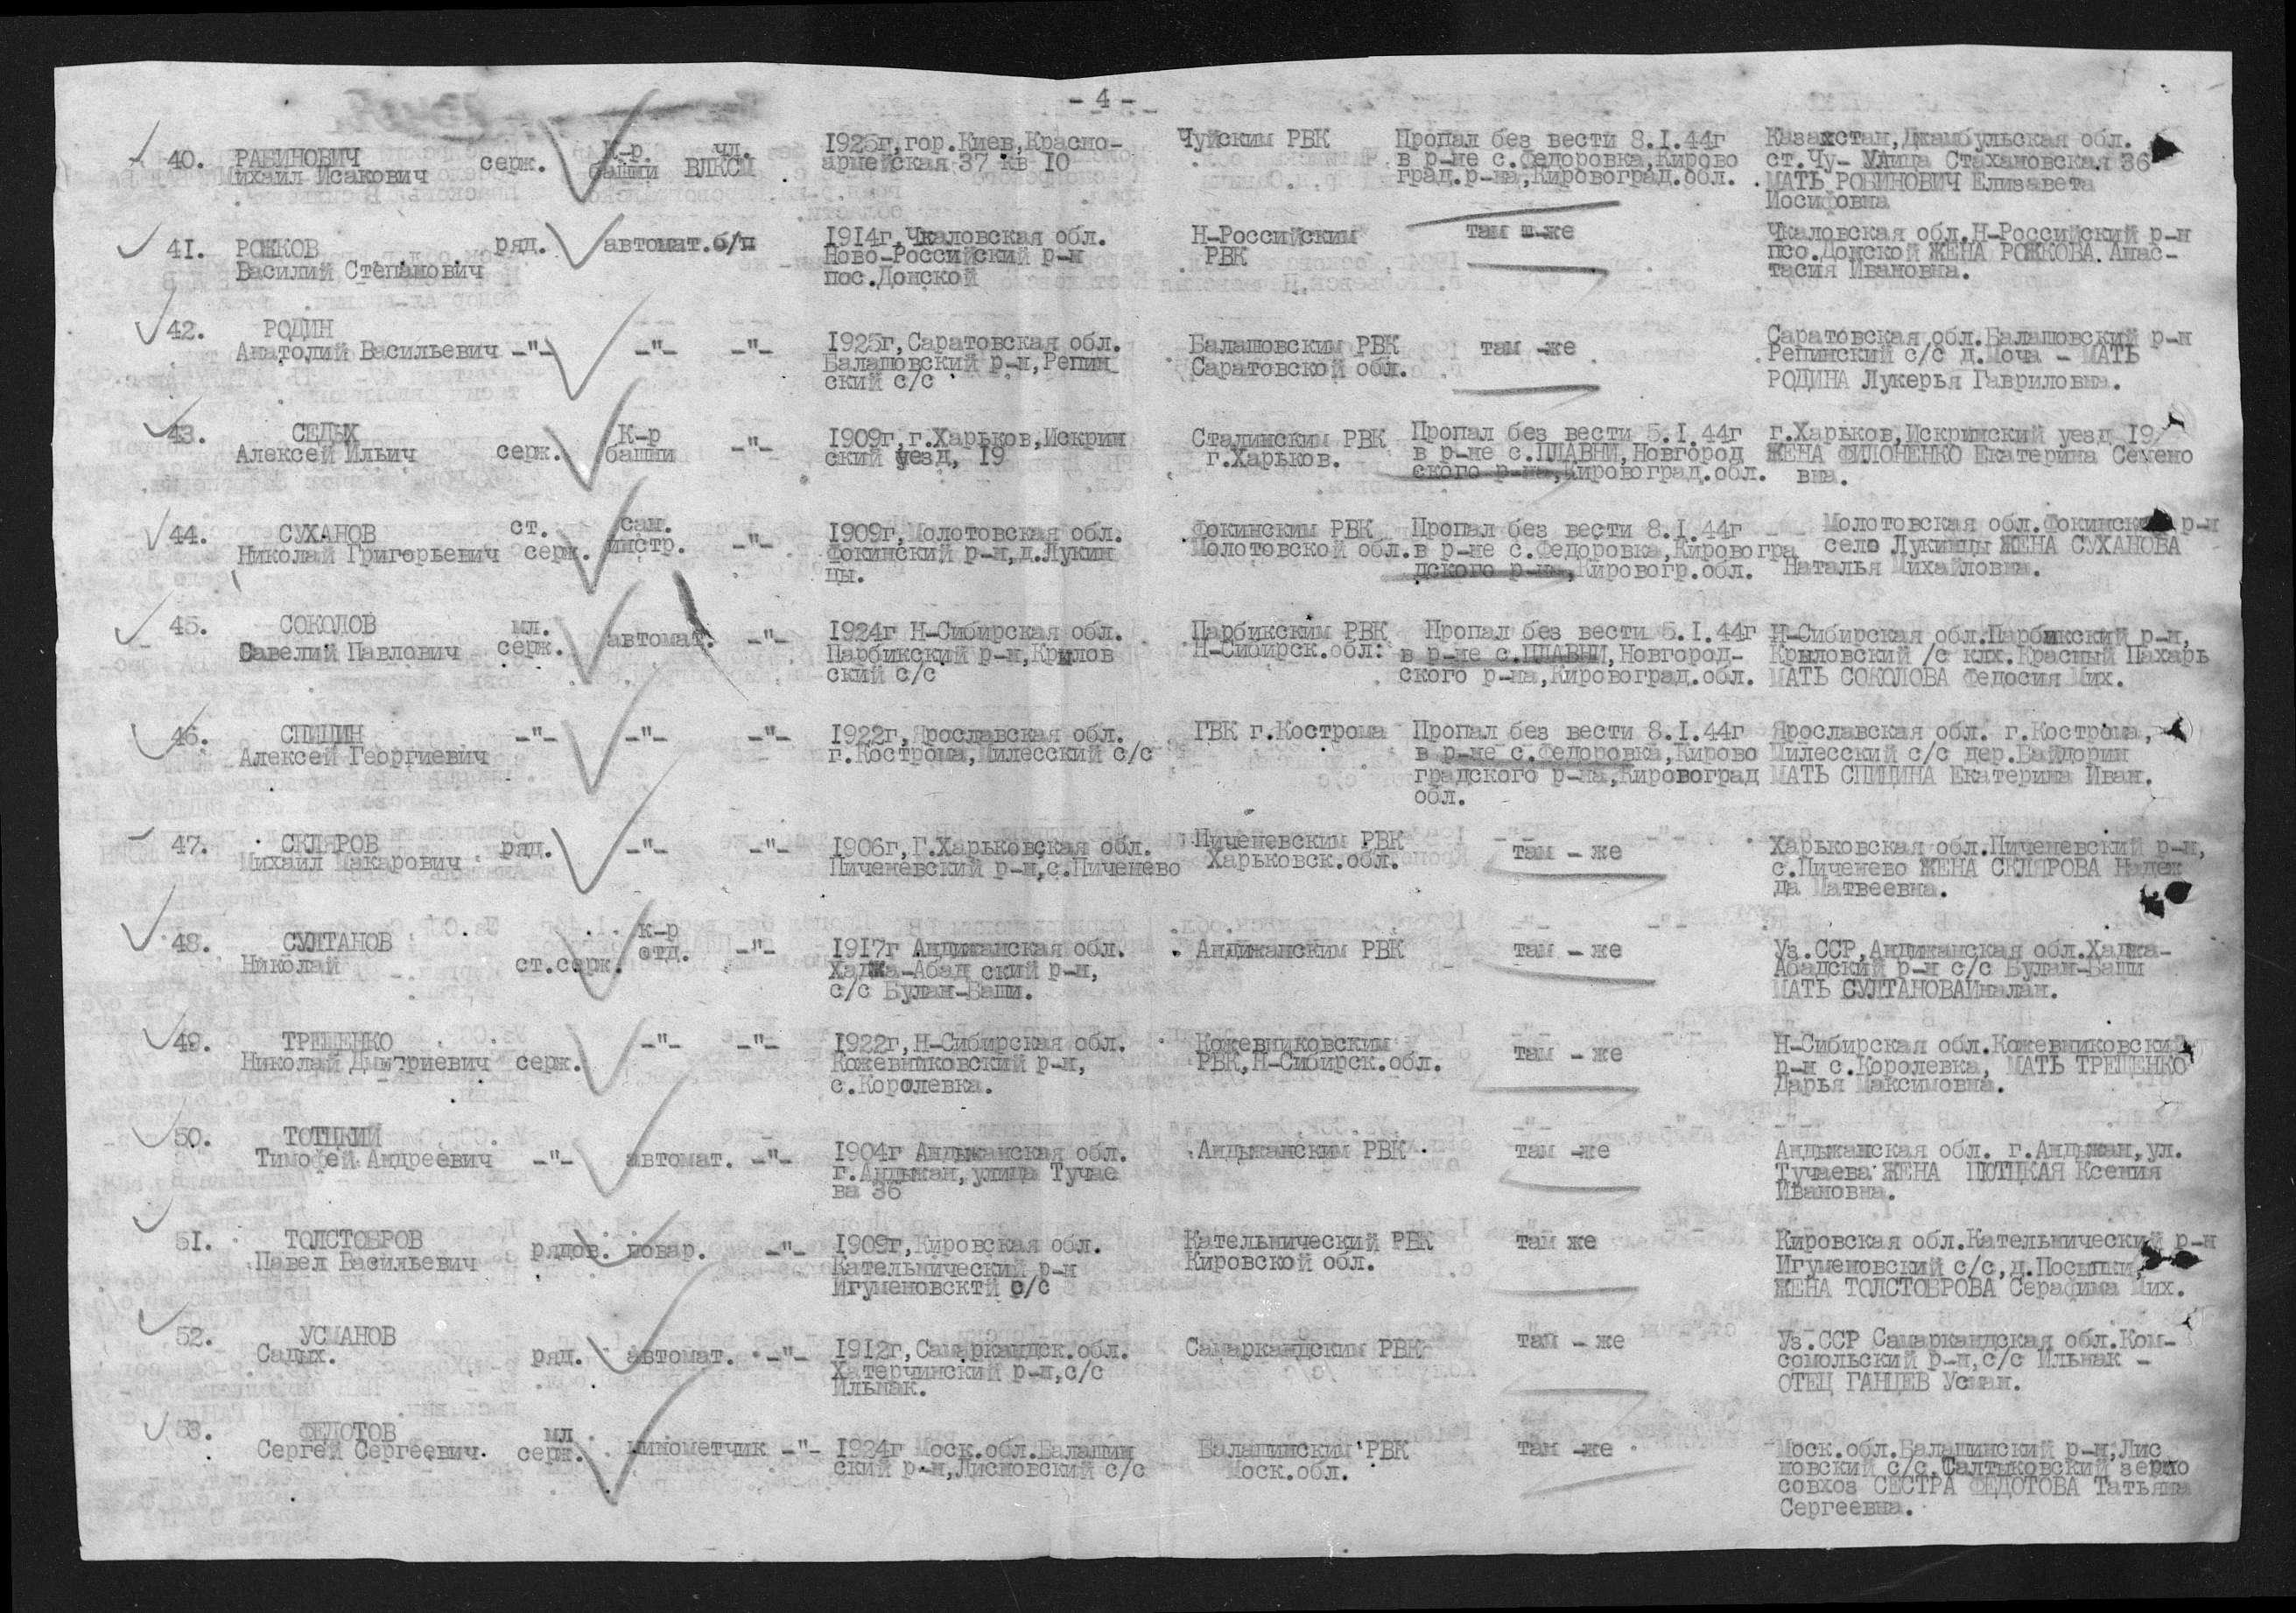 - 4 -
40. РАБИНОВИЧ
Михаил Исакович
серж.
К-р.
башни
чл.
ВЛКСМ
1925г,гор.Киев,Красно-
армейская 37 кв 10
Чуйским РВК
Пропал без вести 8.I.44г
в р-не с.Федоровка,Кирово
град.р-на,Кировоград.обл.
Казахстан,Джамбульская обл.
ст.Чу- Улица Стахановская 36
МАТЬ РОБИНОВИЧ Елизавета
Иосифовна
41. РОЖКОВ
Василий Степанович
ряд.
автомат.б/п
1914г,Чкаловская обл.
Ново-Российский р-н
пос.Донской
Н-Российским
РВК
там -же
Чкаловская обл,Н-Российский р-н
псо.Донской ЖЕНА РОЖКОВА Анас-
тасия Ивановна.
42. РОДИН
Анатолий Васильевич -"-
-"- -"-
1925г,Саратовская обл.
Балашовский р-н,Репин
ский с/с
Балашовским РВК
Саратовской обл.
там -же
Саратовская обл.Балашовский р-н
Репинский с/с д.Моча - МАТЬ
РОДИНА Лукерья Гавриловна.
43. СЕДЫХ
Алексей Ильич
серж.
К-р
башни
-"-
1909г,г.Харьков,Искрин
ский уезд, 19
Сталинским РВК
г.Харьков.
Пропал без вести 5.I.44г
в р-не с.ПЛАВНИ,Новгород
ского р-на,Кировоград.обл.
г.Харьков,Искринский уезд 19
ЖЕНА ФИЛОНЕНКО Екатерина Семено
вна.
44. СУХАНОВ
Николай Григорьевич
ст.
серж.
сан.
инстр.
-"-
1909г,Молотовская обл.
Фокинский р-н,д.Лукин
цы.
Фокинским РВК
Молотовской обл.
Пропал без вести 8.I.44г
в р-не с.Федоровка,Кировогра
дского р-на,Кировогр.обл.
Молотовская обл.Фокинский р-н
село Лукинцы ЖЕНА СУХАНОВА
Наталья Михайловна.
45. СОКОЛОВ
Савелий Павлович
мл.
серж.
автомат. -"-
1924г Н-Сибирская обл.
Парбикский р-н,Крылов
ский с/с
Парбикским РВК
Н-Сибирск.обл.
Пропал без вести 5.I.44г
в р-не с.ПЛАВНИ,Новгород-
ского р-на,Кировоград.обл.
Н-Сибирская обл.Парбикский р-н,
Крыловский /с клх.Красный Пахарь
МАТЬ СОКОЛОВА Федосия Мих.
46. СПИЦИН
Алексей Георгиевич
-"- -"- -"-
1922г,Ярославская обл.
г.Кострома,Шилесский с/с
ГВК г.Кострома
Пропал без вести 8.I.44г
в р-не с.Федоровка,Кирово
градского р-на,Кировоград
обл.
Ярославская обл. г.Кострома,
Шилесский с/с дер.Байдорин
МАТЬ СПИЦИНА Екатерина Иван.
47. СКЛЯРОВ
Михаил Макарович
ряд.
-"- -"-
1906г,Г.Харьковская обл.
Пиченевский р-н,с.Пиченево
Пиченевским РВК
Харьковск.обл.
там - же
Харьковская обл.Пиченевский р-н,
с.Пиченево ЖЕНА СКЛЯРОВА Надеж
да Матвеевна.
48. СУЛТАНОВ
Николай
ст.серж.
к-р
отд.
-"-
1917г Андижанская обл.
Хаджа-Абад ский р-н,
с/с Булан-Баши.
Андижанским РВК
там - же
Уз.ССР,Андижанская обл.Хаджа-
Абадский р-н с/с Булан-Баши
МАТЬ СУЛТАНОВАИналан.
49. ТРЕЩЕНКО
Николай Дмитриевич серж.
-"- -"-
1922г,Н-Сибирская обл.
Кожевниковский р-н,
с.Королевка.
Кожевниковским
РВК,Н-Сибирск.обл.
там - же
Н-Сибирская обл.Кожевниковский
р-н с.Королевка, МАТЬ ТРЕЩЕНКО
Дарья Максимовна.
50. ТОТЦКИЙ
Тимофей Андреевич -"-
автомат. -"-
1904г Андыжанская обл.
г.Андыжан,улица Тучае
ва 36
Андыжанским РВК
там -же
Андыжанская обл. г.Андыжан,ул.
Тучаева ЖЕНА ТОТЦКАЯ Ксения
Ивановна.
51. ТОЛСТОБРОВ
Павел Васильевич
рядов. повар. -"-
1909г,Кировская обл.
Кательнический р-н
Игуменовсктй с/с
Кательнический РВК
Кировской обл.
там же
Кировская обл.Кательнический р-н
Игуменовский с/с,д.Посыпки,
ЖЕНА ТОЛСТОБРОВА Серафима Мих.
52. УСМАНОВ
Садых.
ряд. автомат. -"-
1912г,Самаркандск.обл.
Хатерчинский р-н,с/с
Ильнак.
Самаркандским РВК
там - же
Уз.ССР Самаркандская обл.Ком-
сомольский р-н,с/с Ильнак -
ОТЕЦ ГАНЦЕВ Усман.
53. ФЕДОТОВ
Сергей Сергеевич.
мл
серж.
минометчик -"-
1924г Моск.обл.Балашин
ский р-н,Лисновский с/с
Балашинским РВК
Моск.обл.
там -же
Моск.обл.Балашинский р-н,Лис
новский с/с,Салтыковский зерно
совхоз СЕСТРА ФЕДОТОВА Татьяна
Сергеевна.